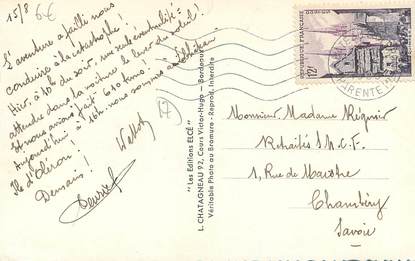 15/8
6€
L'aventure a failli nous
conduire à la catastrophe!
Hier, à 10h du soir, une seule éventualité:
attendre dans la voiture le lever du soleil!
Et nous avions fait 610 kms!
Aujourd'hui à 16h nous sommes au château
Ile d'Oléron!
Demain!
17
"Les Editions ELCÉ"
L. CHATAGNEAU 92, Cours Victor-Hugo - Bordeaux
Véritable Photo au Bromure - Reprod. Interdite
REPUBLIQUE FRANÇAISE
12F
CHARENTE
Monsieur Madame Régnier
Retraités S.N.C.F.
1, Rue de Maistre
Chambéry
Savoie